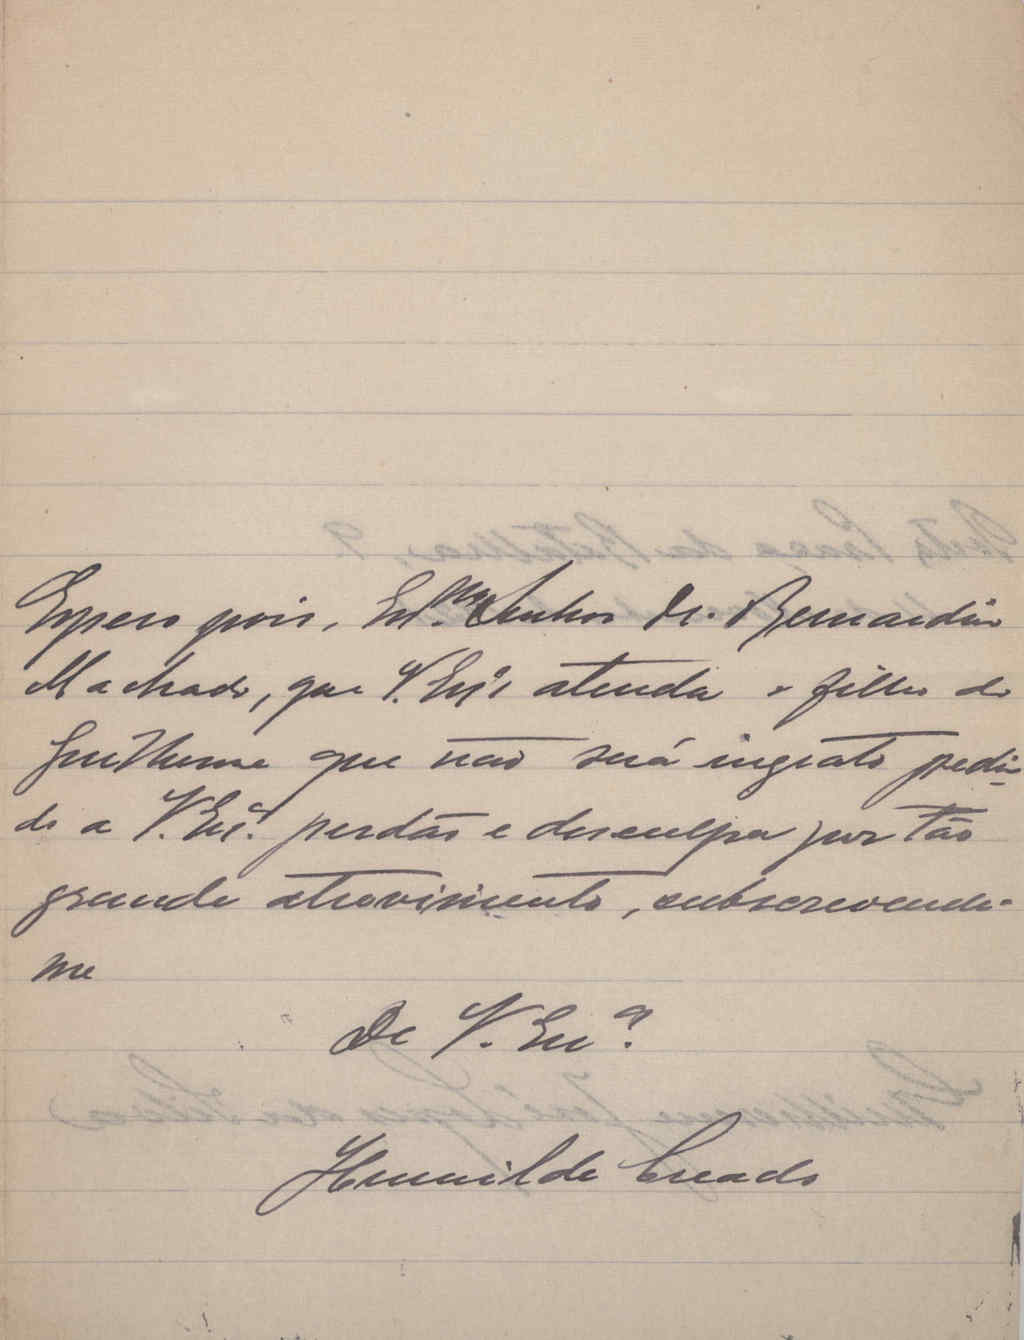 Espero pois, Exmo. Senhor Dr. Bernardino
Machado, que V. Excia atenda o filho do
Guilherme que não será ingrato pedin-
do a V. Excia. perdão e desculpa por tão
grande atrevimento, subscrevendo-
me
De V. Exa.
Humilde Creado